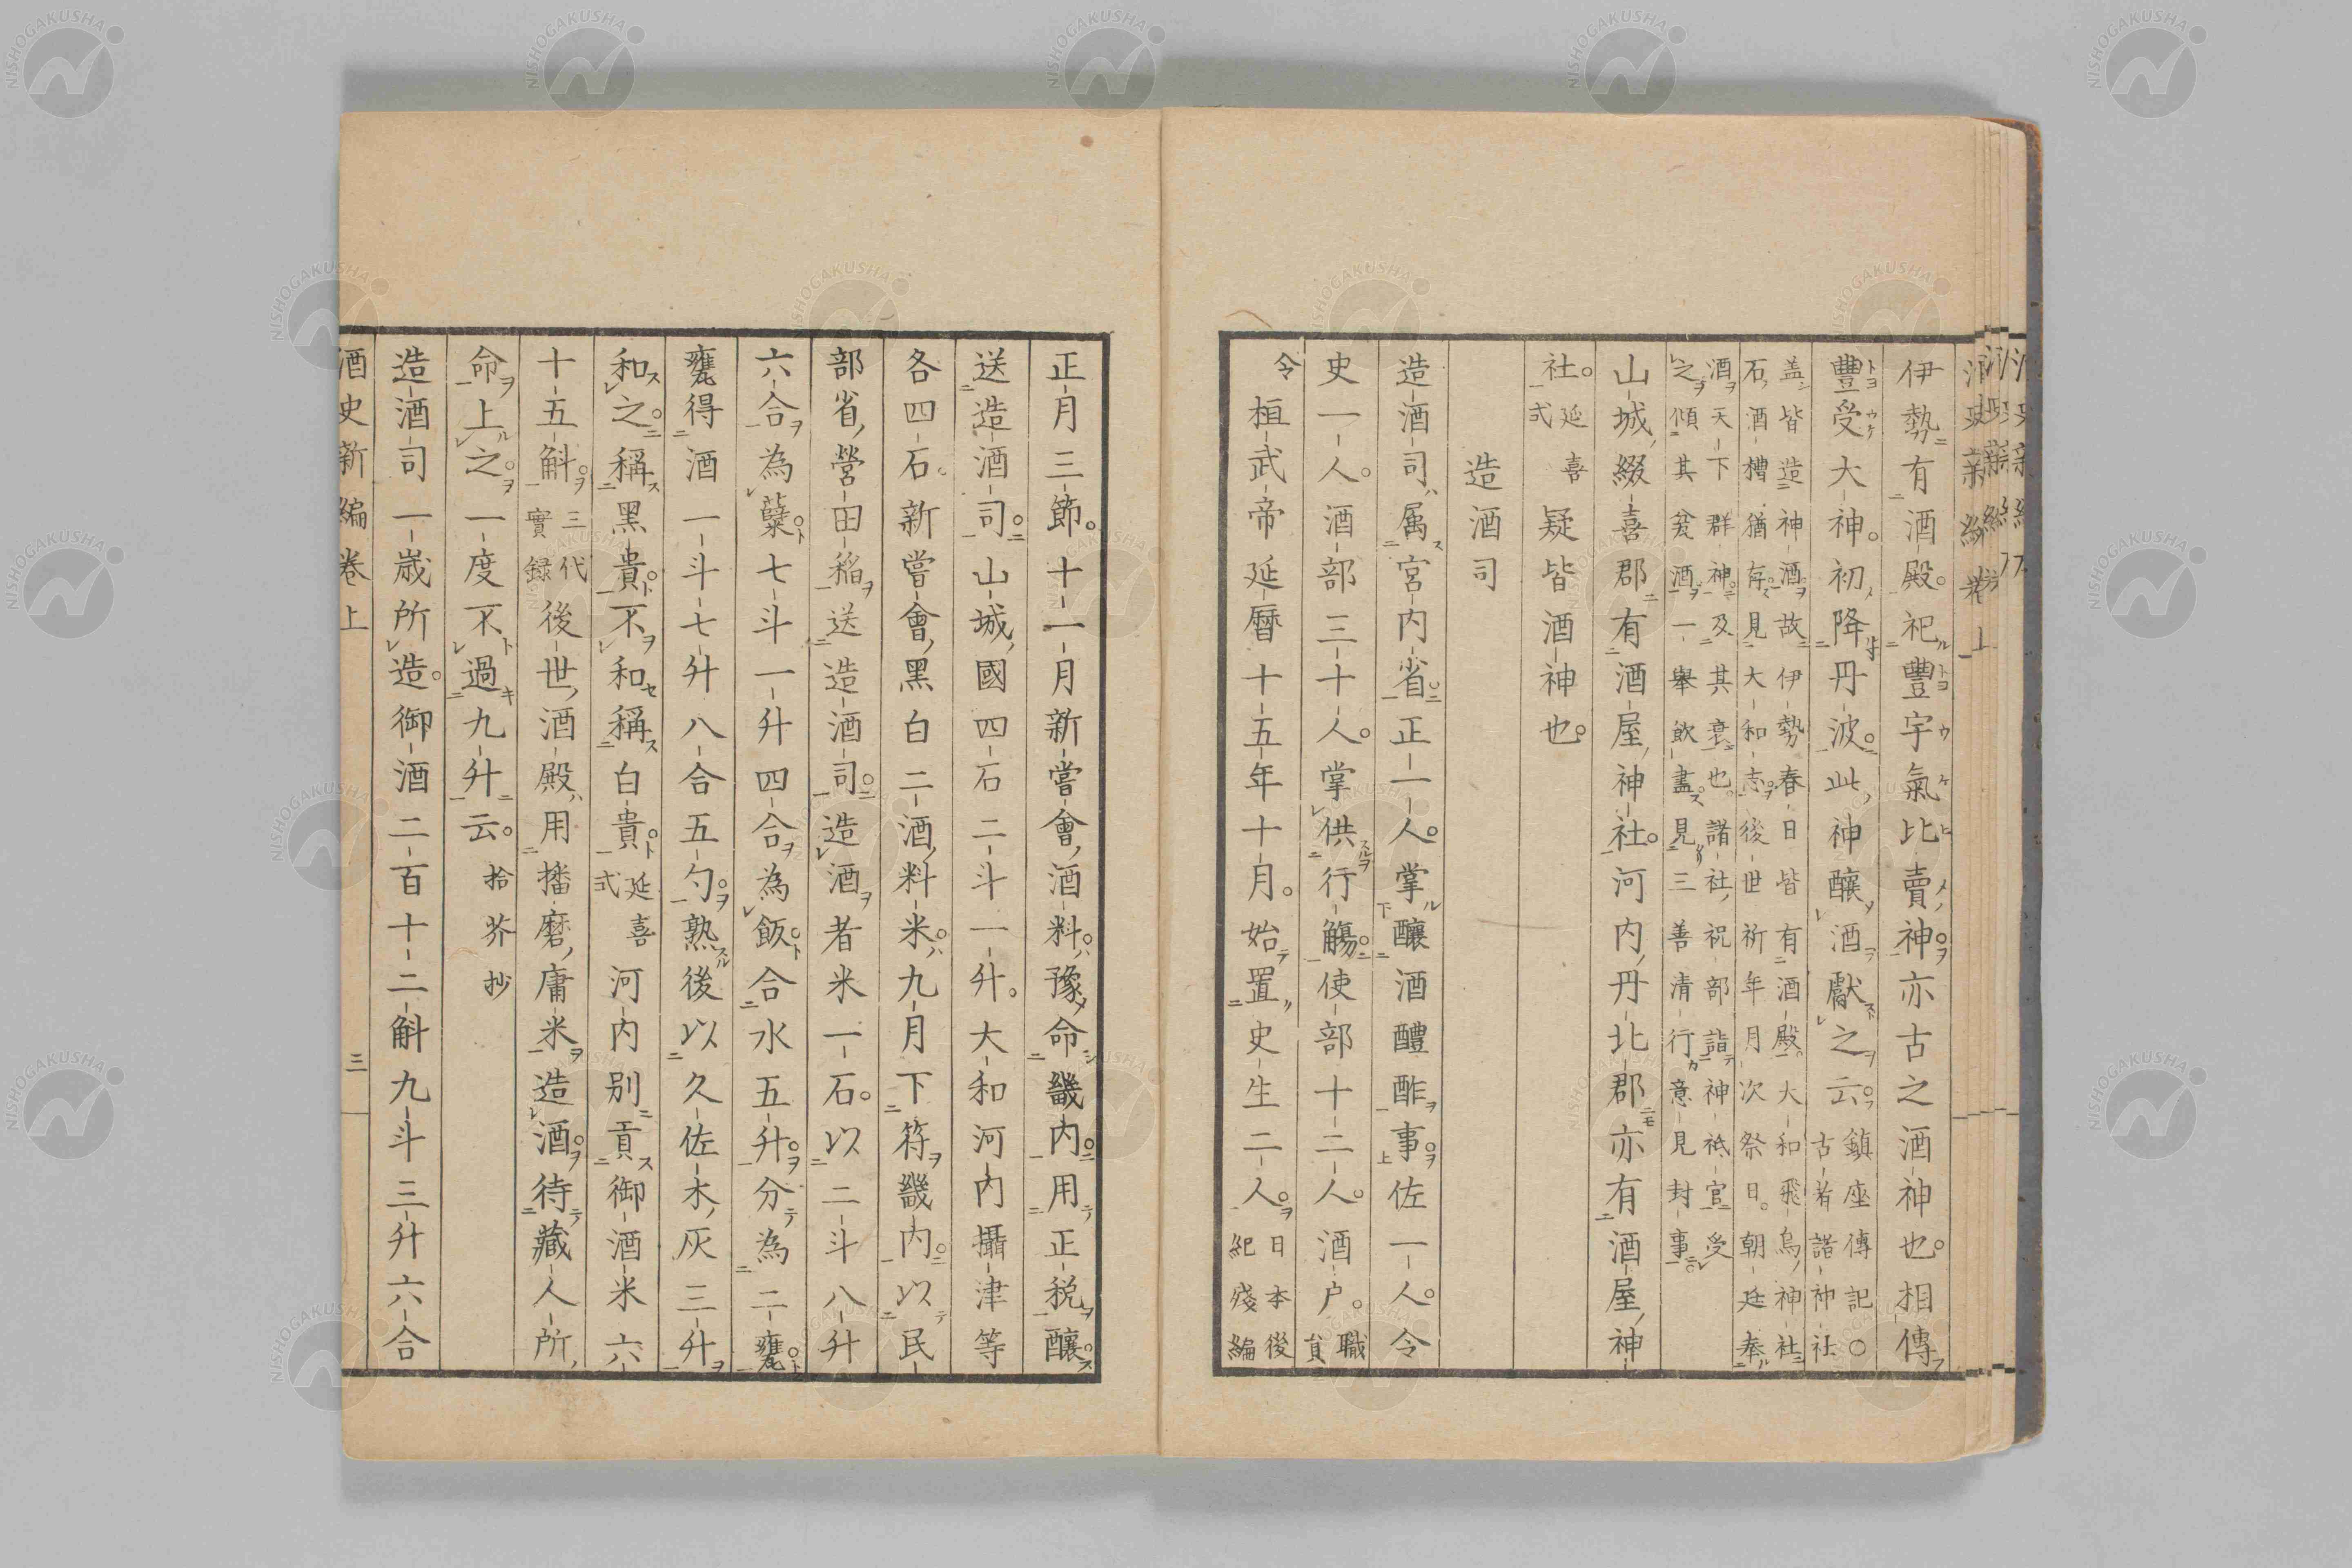 伊勢有酒殿。祀豐宇氣比賣神。亦古之酒神也。相傳
豐受大神。初降丹波。此神釀酒獻之云。鎮座傳記○
古者諸神社
蓋皆造神酒。故伊勢春日皆有酒殿。大和飛鳥神社
石酒槽猶存。見大和志。後世祈年月次祭日。朝廷奉
酒天下群神。及其衰也。諸社祝部詣神祇官受
之傾其瓮酒一舉飲盡。見三善清行意見封事。
山城綴喜郡有酒屋神社。河内丹北郡亦有酒屋神
社。延喜
式疑皆酒神也。
造酒司
造酒司属宮内省。正一人。掌釀酒醴酢事。佐一人。令
史一人。酒部三十人。掌供行觴。使部十二人。酒户。職
員
令桓武帝延曆十五年十月。始置史生二人。日本後
紀殘編
正月三節。十一月新嘗會酒料。豫命畿内。用正税釀。
送造酒司。山城國四石二斗一升。大和河内攝津等
各四石。新嘗會黑白二酒料米。九月下符畿内。以民
部省營田稲送造酒司。造酒者米一石。以二斗八升
六合為糵。七斗一升四合為飯。合水五升。分為二甕。
甕得酒一斗七升八合五勺。熟後以久佐木灰三升
和之。稱黑貴。不和稱白貴。延喜
式河内别貢御酒米六
十五斛。三代
實録後世酒殿用播磨庸米造酒。待藏人所
命上之。一度不過九升云。拾芥抄
造酒司一歳所造。御酒二百十二斛九斗三升六合
酒史新編卷上
三